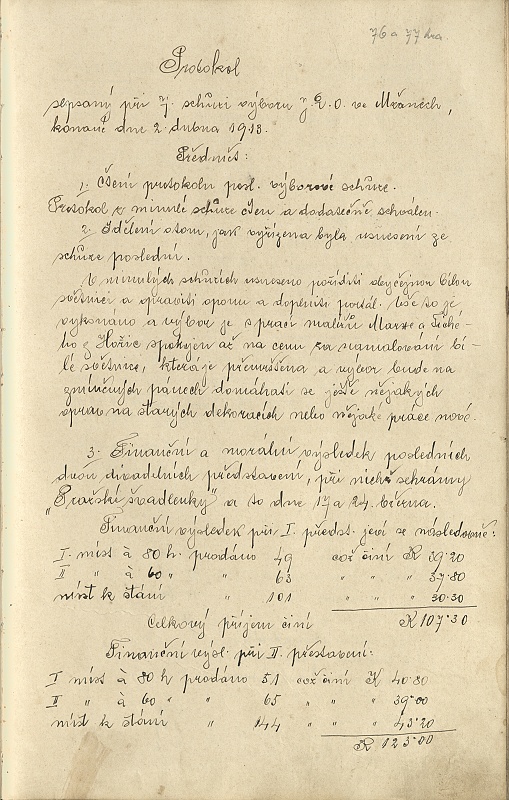 76 a 77 hra.
Protokol
sepsaný při 7. schůzi výboru j. E. O. ve Mžanech,
konané dne 2. dubna 1913.
Předmět:
1. Čtení protokolu posl. výborové schůze.
Protokol z minulé schůze čten a dodatečně schválen.
2. Sdělení o tom, jak vyřízena byla usnesení ze
schůze poslední.
V minulých schůzích usneseno poříditi obyčejnou bílou
světnici a opraviti oponu a doplniti portál. Vše to je
vykonáno a výbor je s prací malířů a
ho z Hořic spokojen až na cenu za namalování bí-
lé světnice, která je přemrštěna a výbor bude na
zmíněných pánech domáhati se ještě nějakých
oprav na starých dekoracích nebo nějaké práce nové.
3. Finanční a morální výsledek posledních
dvou divadelních představení, při nichž sehrány
"Pražské švadlenky" a to dne 17 a 24. března.
Finanční výsledek při I. předst. jeví se následovně:
I míst à 80 h. prodáno 49 což činí K 39·20
II " à 60 " " 63 " " " 37·80
míst k stání " 101 " " " 30·30
Celkový příjem činí K 107·30
Finanční výsl. při II. přestavení:
I míst à 80 h prodáno 51 což činí K 40·80
II " à 60 " " 65 " " " 39·00
míst k stání " 144 " " " 43·20
K 123·00